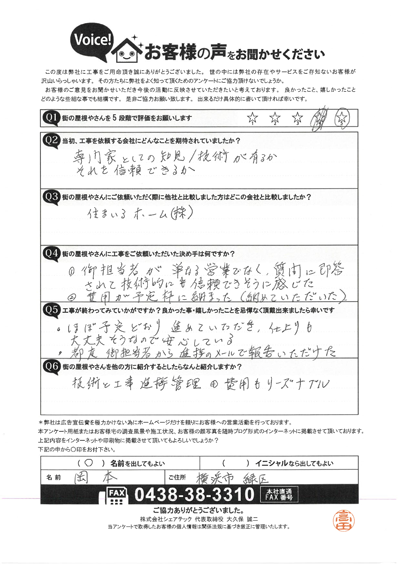 Voice!
お客様の声をお聞かせください
この度は弊社に工事をご用命頂き誠にありがとうございました。世の中には弊社の存在やサービスをご存知ないお客様が
沢山いらっしゃいます。その方たちに弊社をよく知って頂くためのアンケートにご協力頂けないでしょうか。
お客様のご意見をお聞かせいただき今後の活動に反映させていただきたいと考えております。良かったこと、嬉しかったこと
どのような些細な事でも結構です。是非ご協力お願い致します。出来るだけ具体的に書いて頂ければ幸いです。
Q1 街の屋根やさんを5段階で評価をお願いします ☆ ☆ ☆ ☆
Q2 当初、工事を依頼する会社にどんなことを期待されていましたか?
専門家としての知見/技術が有るか
それを信頼できるか
Q3 街の屋根やさんにご依頼いただく際に他社と比較しました方はどこの会社と比較しましたか?
住まいるホーム(株)
Q4 街の屋根やさんに工事をご依頼いただいた決め手は何ですか?
① 御担当者が単なる営業でなく、質問に即答
されて技術的にも信頼できそうに感じた
② 費用が予定枠に納まった(納めていただいた)
Q5 工事が終わってみていかがですか?良かった事・嬉しかったことを忌憚なく頂戴出来ましたら幸いです
・ほぼ予定どおり進めていただき、仕上りも
大丈夫そうなので安心している
・都度御担当者から進捗のメールで報告いただけた
Q6 街の屋根やさんを他の方に紹介するとしたらなんと紹介しますか?
技術と工事進捗管理 費用もリーズナブル
※弊社は広告宣伝費を極力かけない為にホームページだけを頼りにお客様への営業活動を行っております。
本アンケート用紙またはお客様宅の調査風景や施工状況、お客様の顔写真を随時ブログ形式のインターネットに掲載させて頂いております。
上記内容をインターネットや印刷物に掲載させて頂いてもよろしいでしょうか?
下記の中から〇印をお付け下さい。
(〇)名前を出してもよい ( )イニシャルなら出してもよい
名前 岡本 ご住所 横浜市緑区
FAX 0438-38-3310 本社直通 FAX番号
ご協力ありがとうございました。
株式会社シェアテック 代表取締役 大久保 誠二
当アンケートで取得したお客様の個人情報は関係法規に基づき厳正に管理いたします。